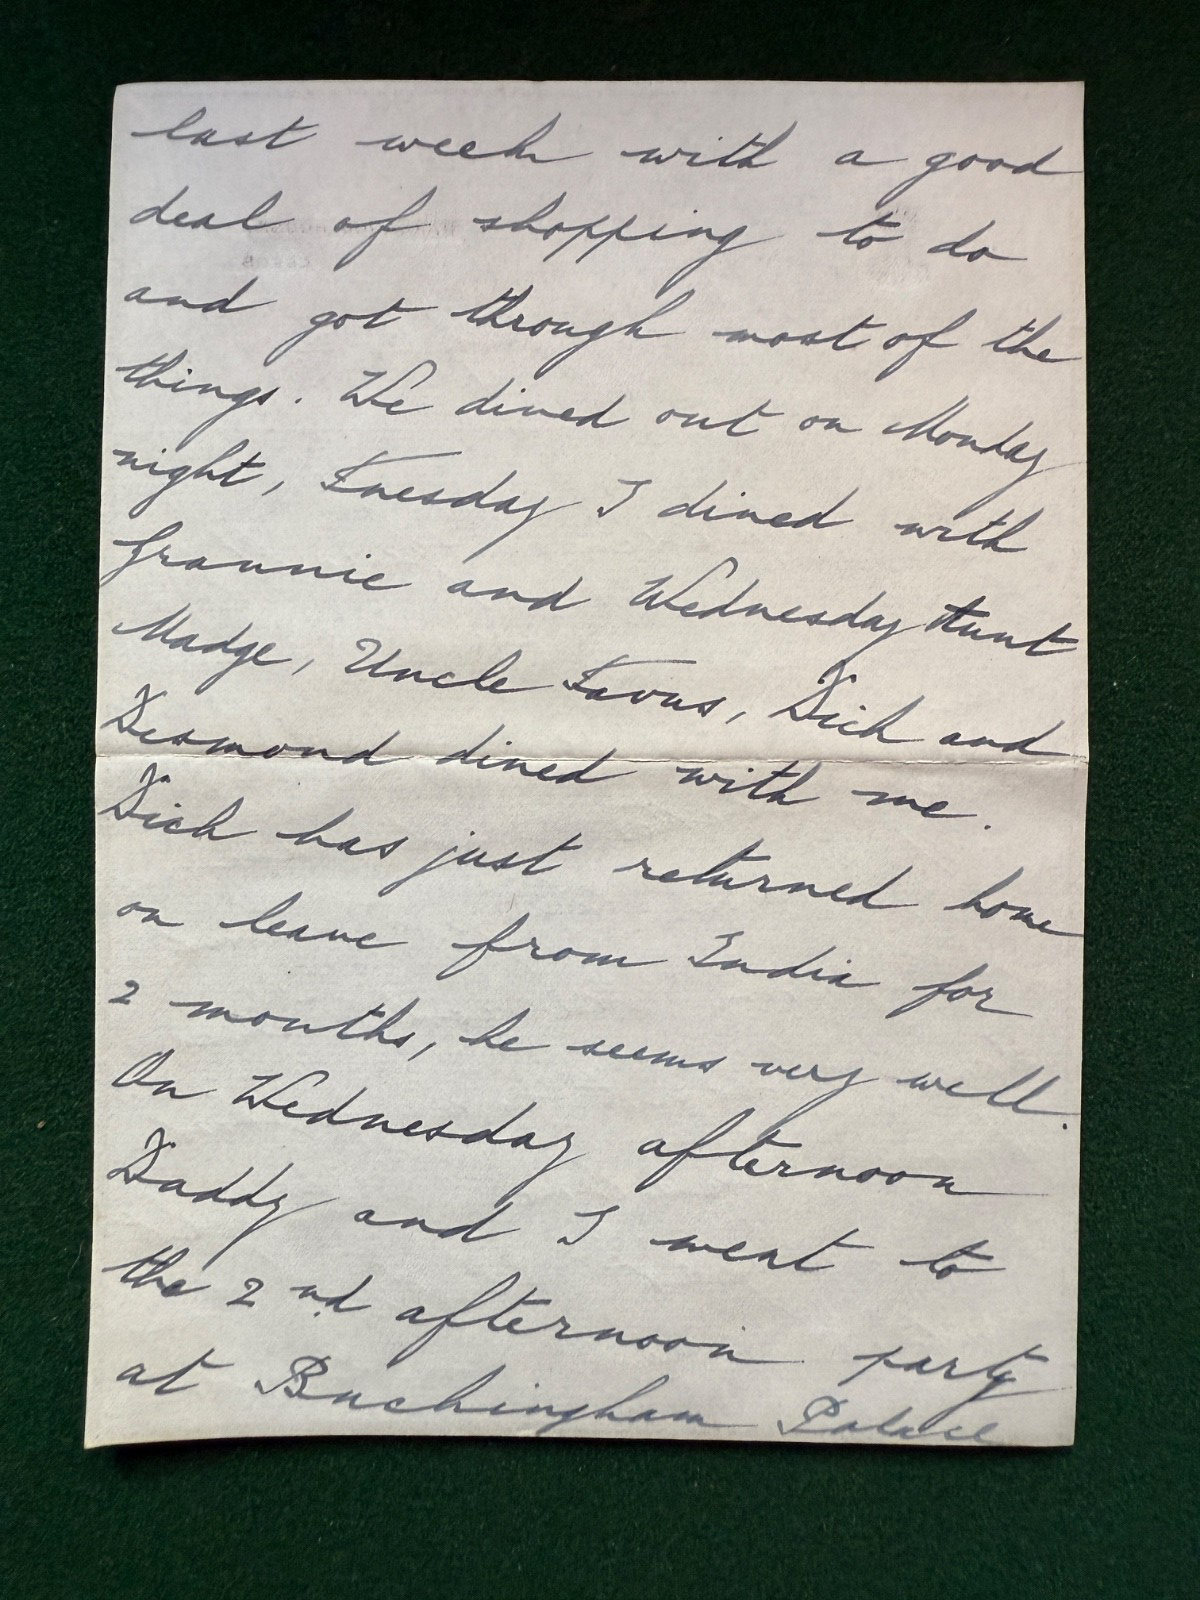 last week with a good
deal of shopping to do
and got through most of the
things. We dined out on Monday
night, Tuesday I dined with
Grannie and Wednesday Aunt
Madge, Uncle Favus, Dick and
Desmond dined with me.
Dick has just returned home
on leave from India for
2 months, he seems very well.
On Wednesday afternoon
Daddy and I went to
the 2nd afternoon party
at Buckingham Palace